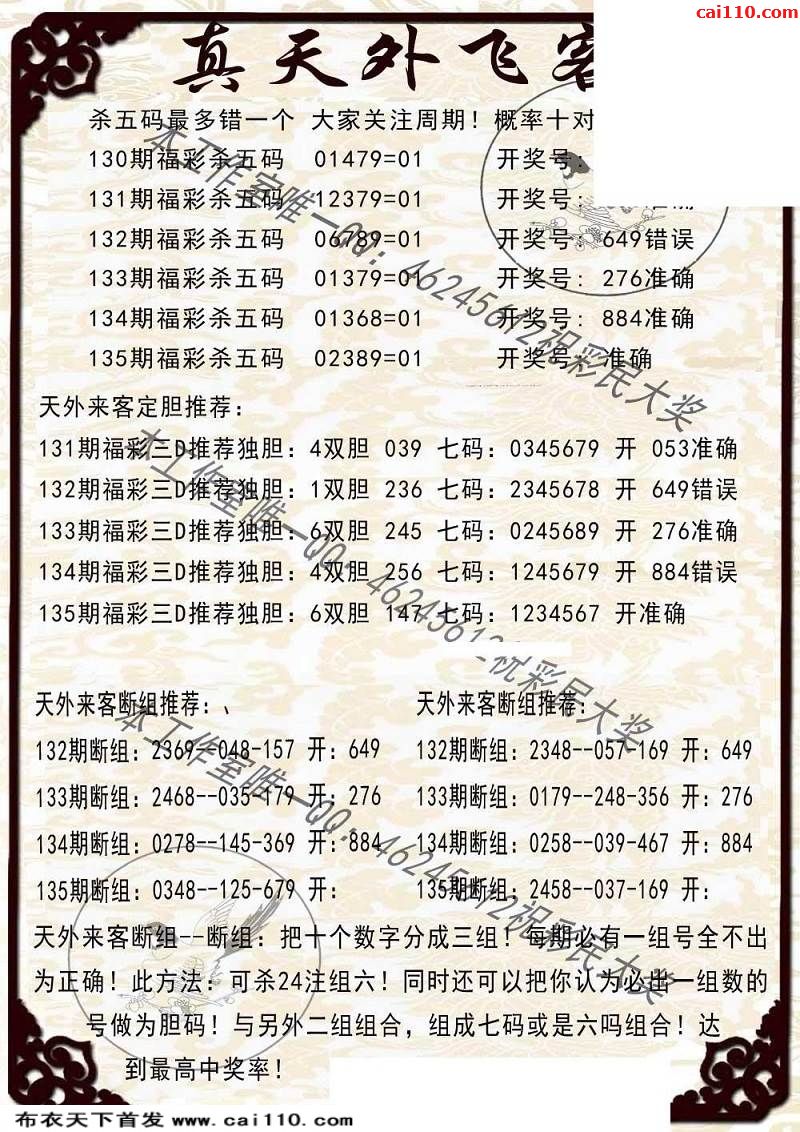 cai110.com
真天外飞客
杀五码最多错一个 大家关注周期！概率十对
130期福彩杀五码 01479=01 开奖号:
131期福彩杀五码 12379=01 开奖号: 准确
132期福彩杀五码 06789=01 开奖号: 649错误
133期福彩杀五码 01379=01 开奖号: 276准确
134期福彩杀五码 01368=01 开奖号: 884准确
135期福彩杀五码 02389=01 开奖号: 准确
本工作室唯一QQ：46245612祝彩民大奖
天外来客定胆推荐：
131期福彩三D推荐独胆：4双胆 039 七码：0345679 开 053准确
132期福彩三D推荐独胆：1双胆 236 七码：2345678 开 649错误
133期福彩三D推荐独胆：6双胆 245 七码：0245689 开 276准确
134期福彩三D推荐独胆：4双胆 256 七码：1245679 开 884错误
135期福彩三D推荐独胆：6双胆 147 七码：1234567 开准确
本工作室唯一QQ：46245612祝彩民大奖
天外来客断组推荐：、 天外来客断组推荐：
132期断组：2369--048-157 开：649 132期断组：2348--057-169 开：649
133期断组：2468--035-179 开：276 133期断组：0179--248-356 开：276
134期断组：0278--145-369 开：884 134期断组：0258--039-467 开：884
135期断组：0348--125-679 开： 135期断组：2458--037-169 开：
本工作室唯一QQ：46245612祝彩民大奖
天外来客断组--断组：把十个数字分成三组！每期必有一组号全不出
为正确！此方法：可杀24注组六！同时还可以把你认为必出一组数的
号做为胆码！与另外二组组合，组成七码或是六吗组合！达
到最高中奖率！
布衣天下首发 www.cai110.com